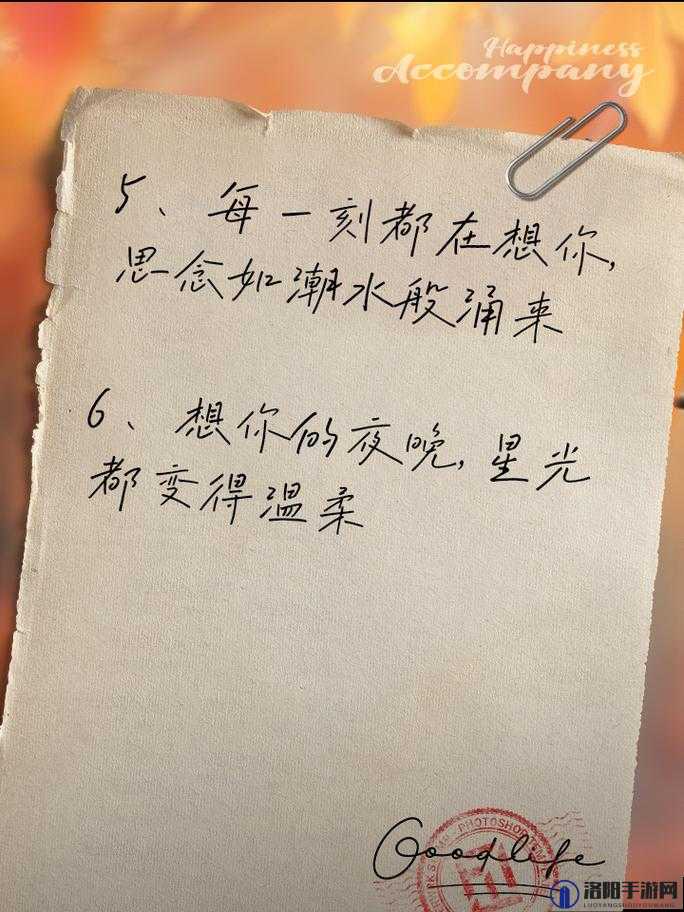 Happiness
Accompany
5、每一刻都在想你,
思念如潮水般涌来
6、想你的夜晚,星光
都变得温柔
PHOTOSHOP
Goodlife
洛阳手游网
LUOYANGSHOUYOUWANG